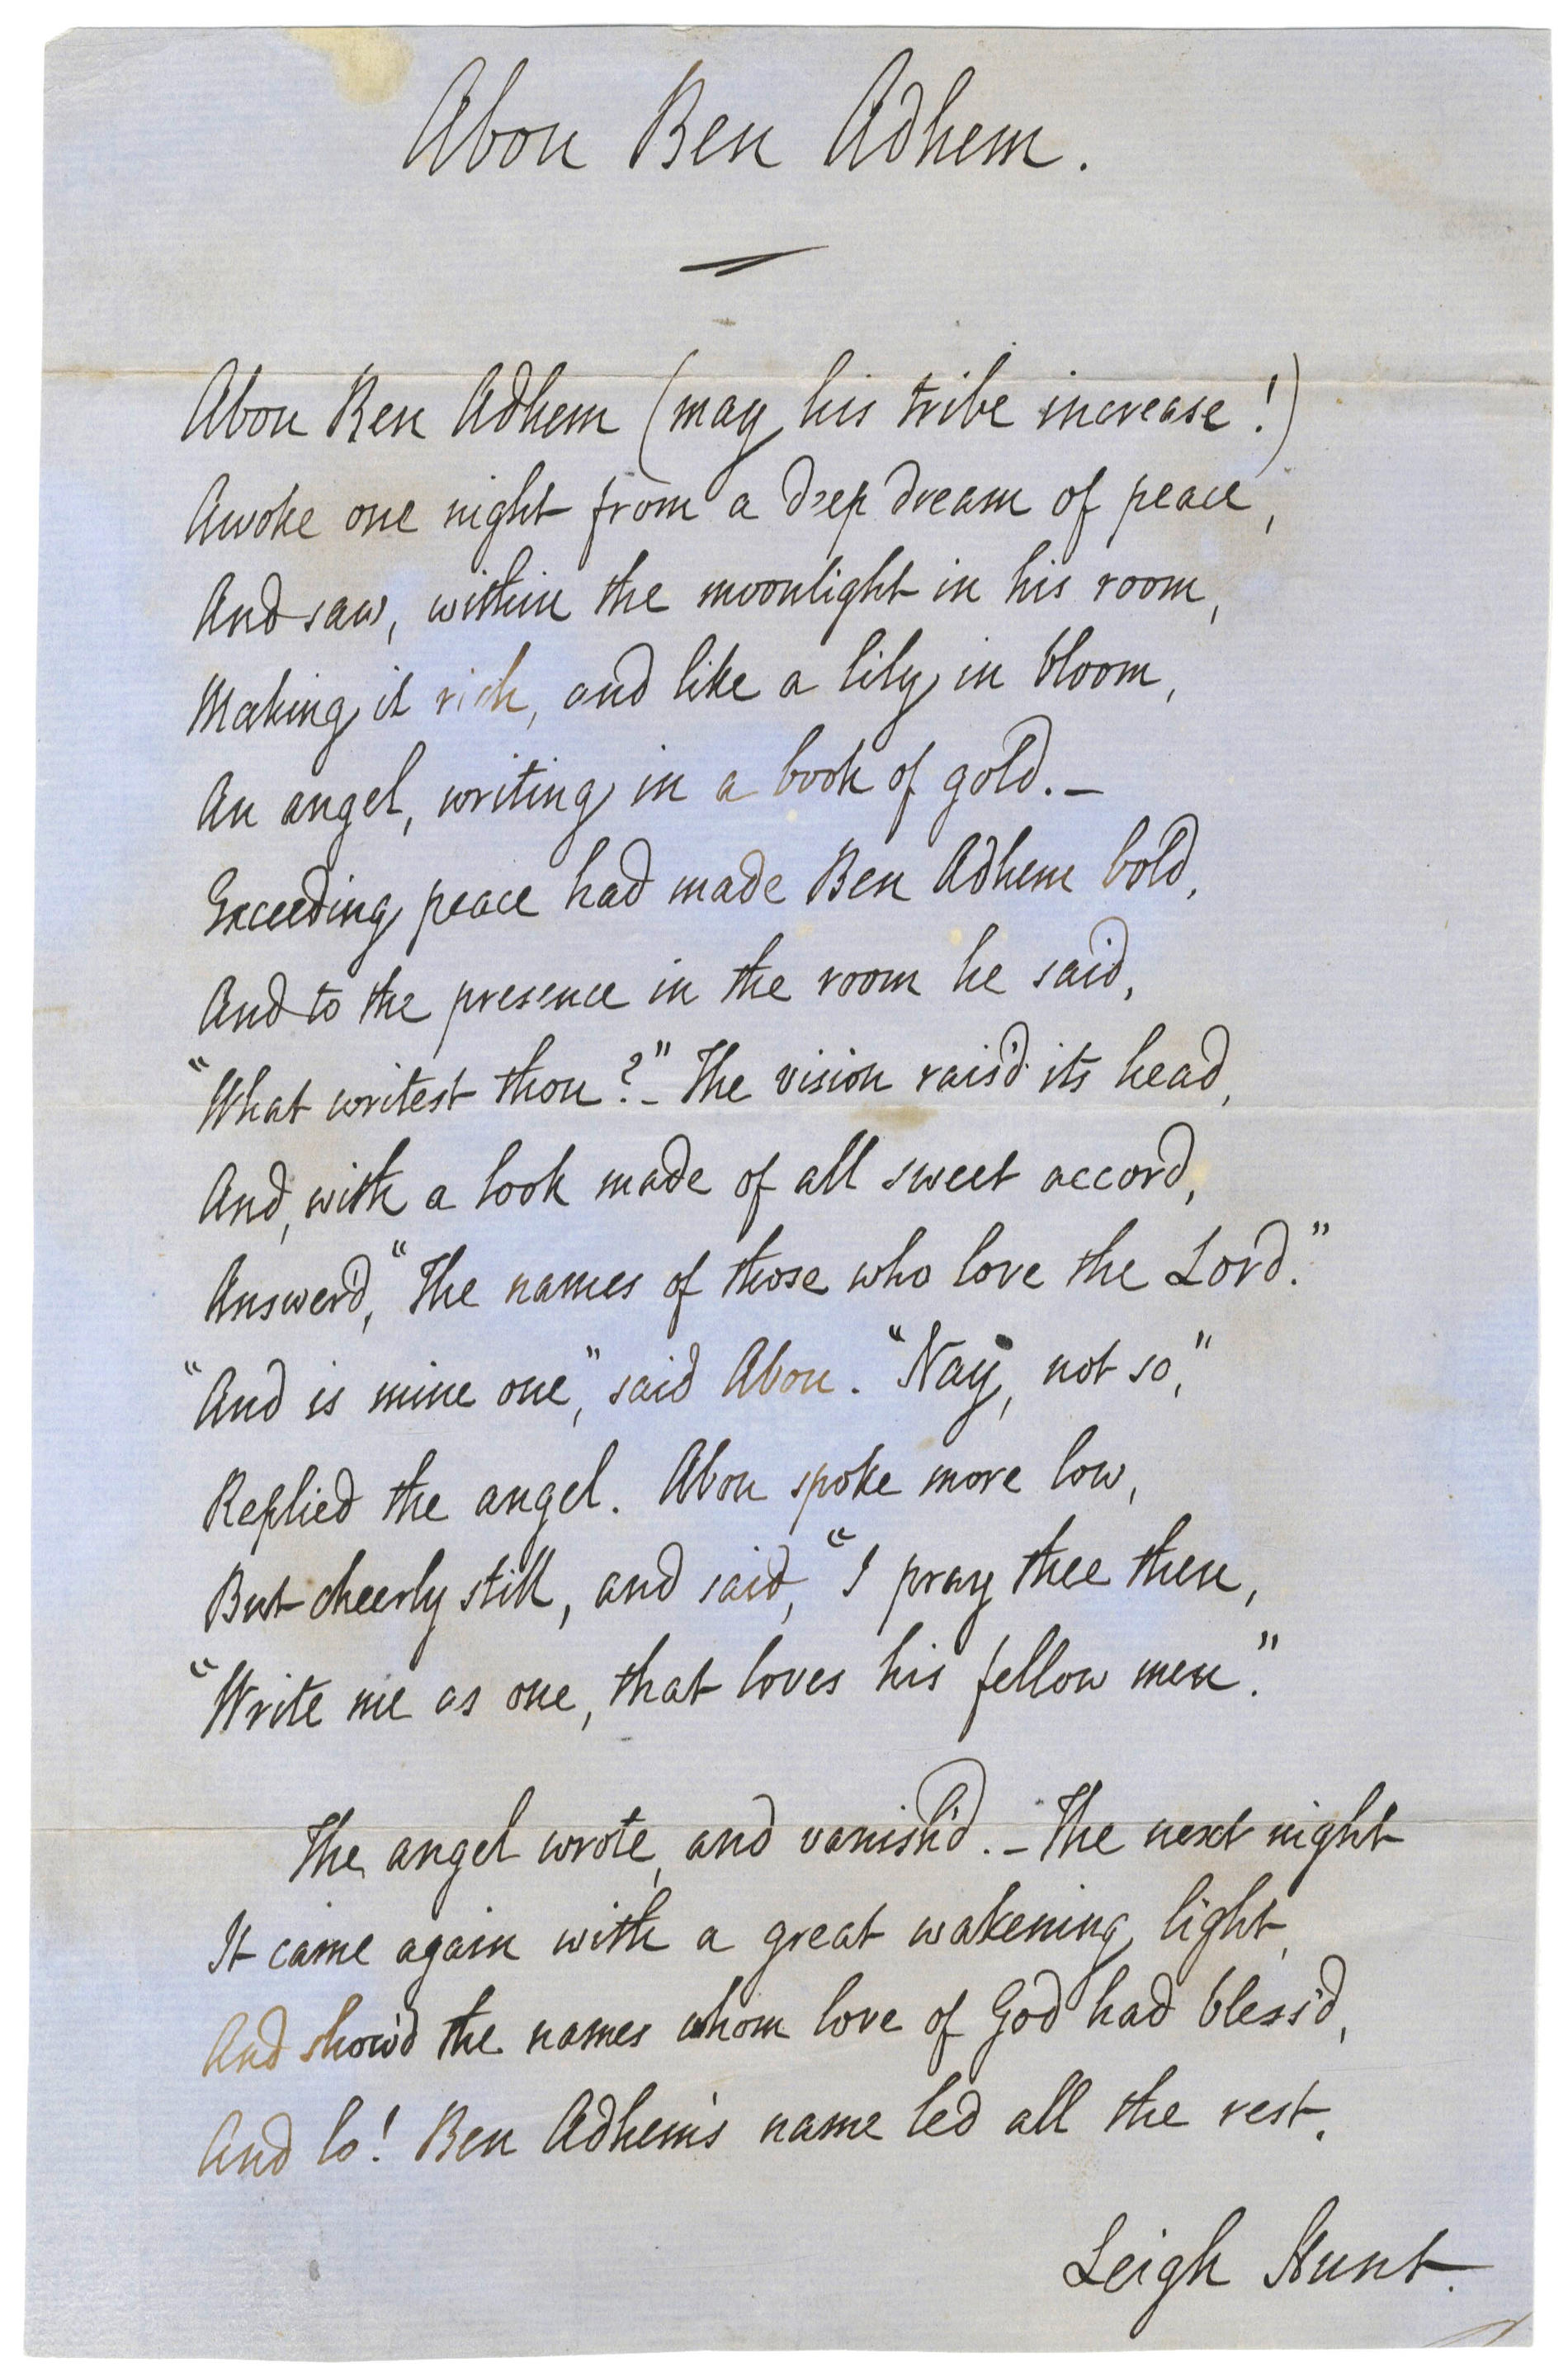 Abou Ben Adhem.
Abou Ben Adhem (may his tribe increase!)
Awoke one night from a deep dream of peace,
And saw, within the moonlight in his room,
Making it rich, and like a lily in bloom,
An angel, writing in a book of gold.—
Exceeding peace had made Ben Adhem bold,
And to the presence in the room he said,
"What writest thou?"— The vision rais'd its head,
And, with a look made of all sweet accord,
Answer'd, "The names of those who love the Lord."
"And is mine one," said Abou. "Nay, not so,"
Replied the angel. Abou spoke more low,
But cheerly still, and said, "I pray thee then,
"Write me as one, that loves his fellow men."
The angel wrote, and vanish'd.— The next night
It came again with a great wakening light,
And show'd the names whom love of God had bless'd,
And lo! Ben Adhem's name led all the rest.
Leigh Hunt.